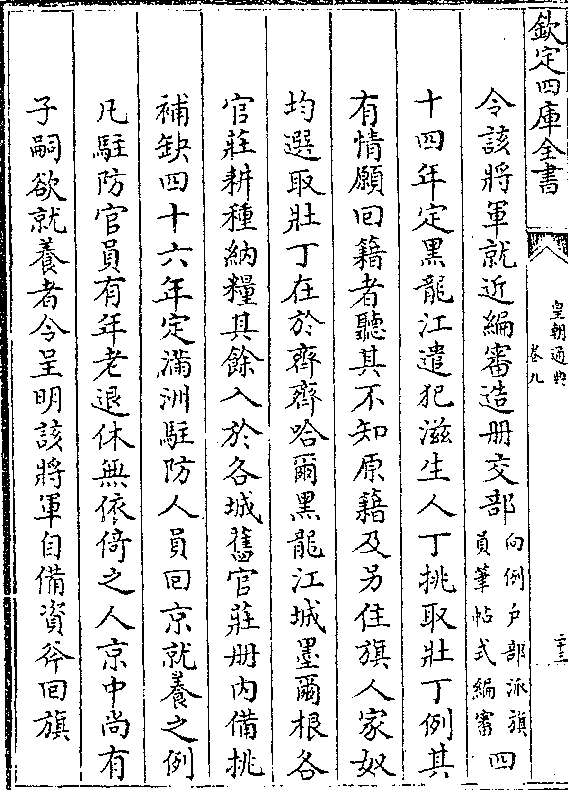 欽定四庫全書
皇朝通典
卷九
二十三
令該將軍就近編審造册交部向例户部派旗員筆帖式編審四
十四年定黑龍江遣犯滋生人丁挑取壯丁例其
有情願回籍者聽其不知原籍及另住旗人家奴
均選取壯丁在於齊齊哈爾黑龍江城墨爾根各
官莊耕種納糧其餘入於各城舊官莊册内備挑
補缺四十六年定滿洲駐防人員回京就養之例
凡駐防官員有年老退休無依倚之人京中尚有
子嗣欲就養者令呈明該將軍自備資斧回旗